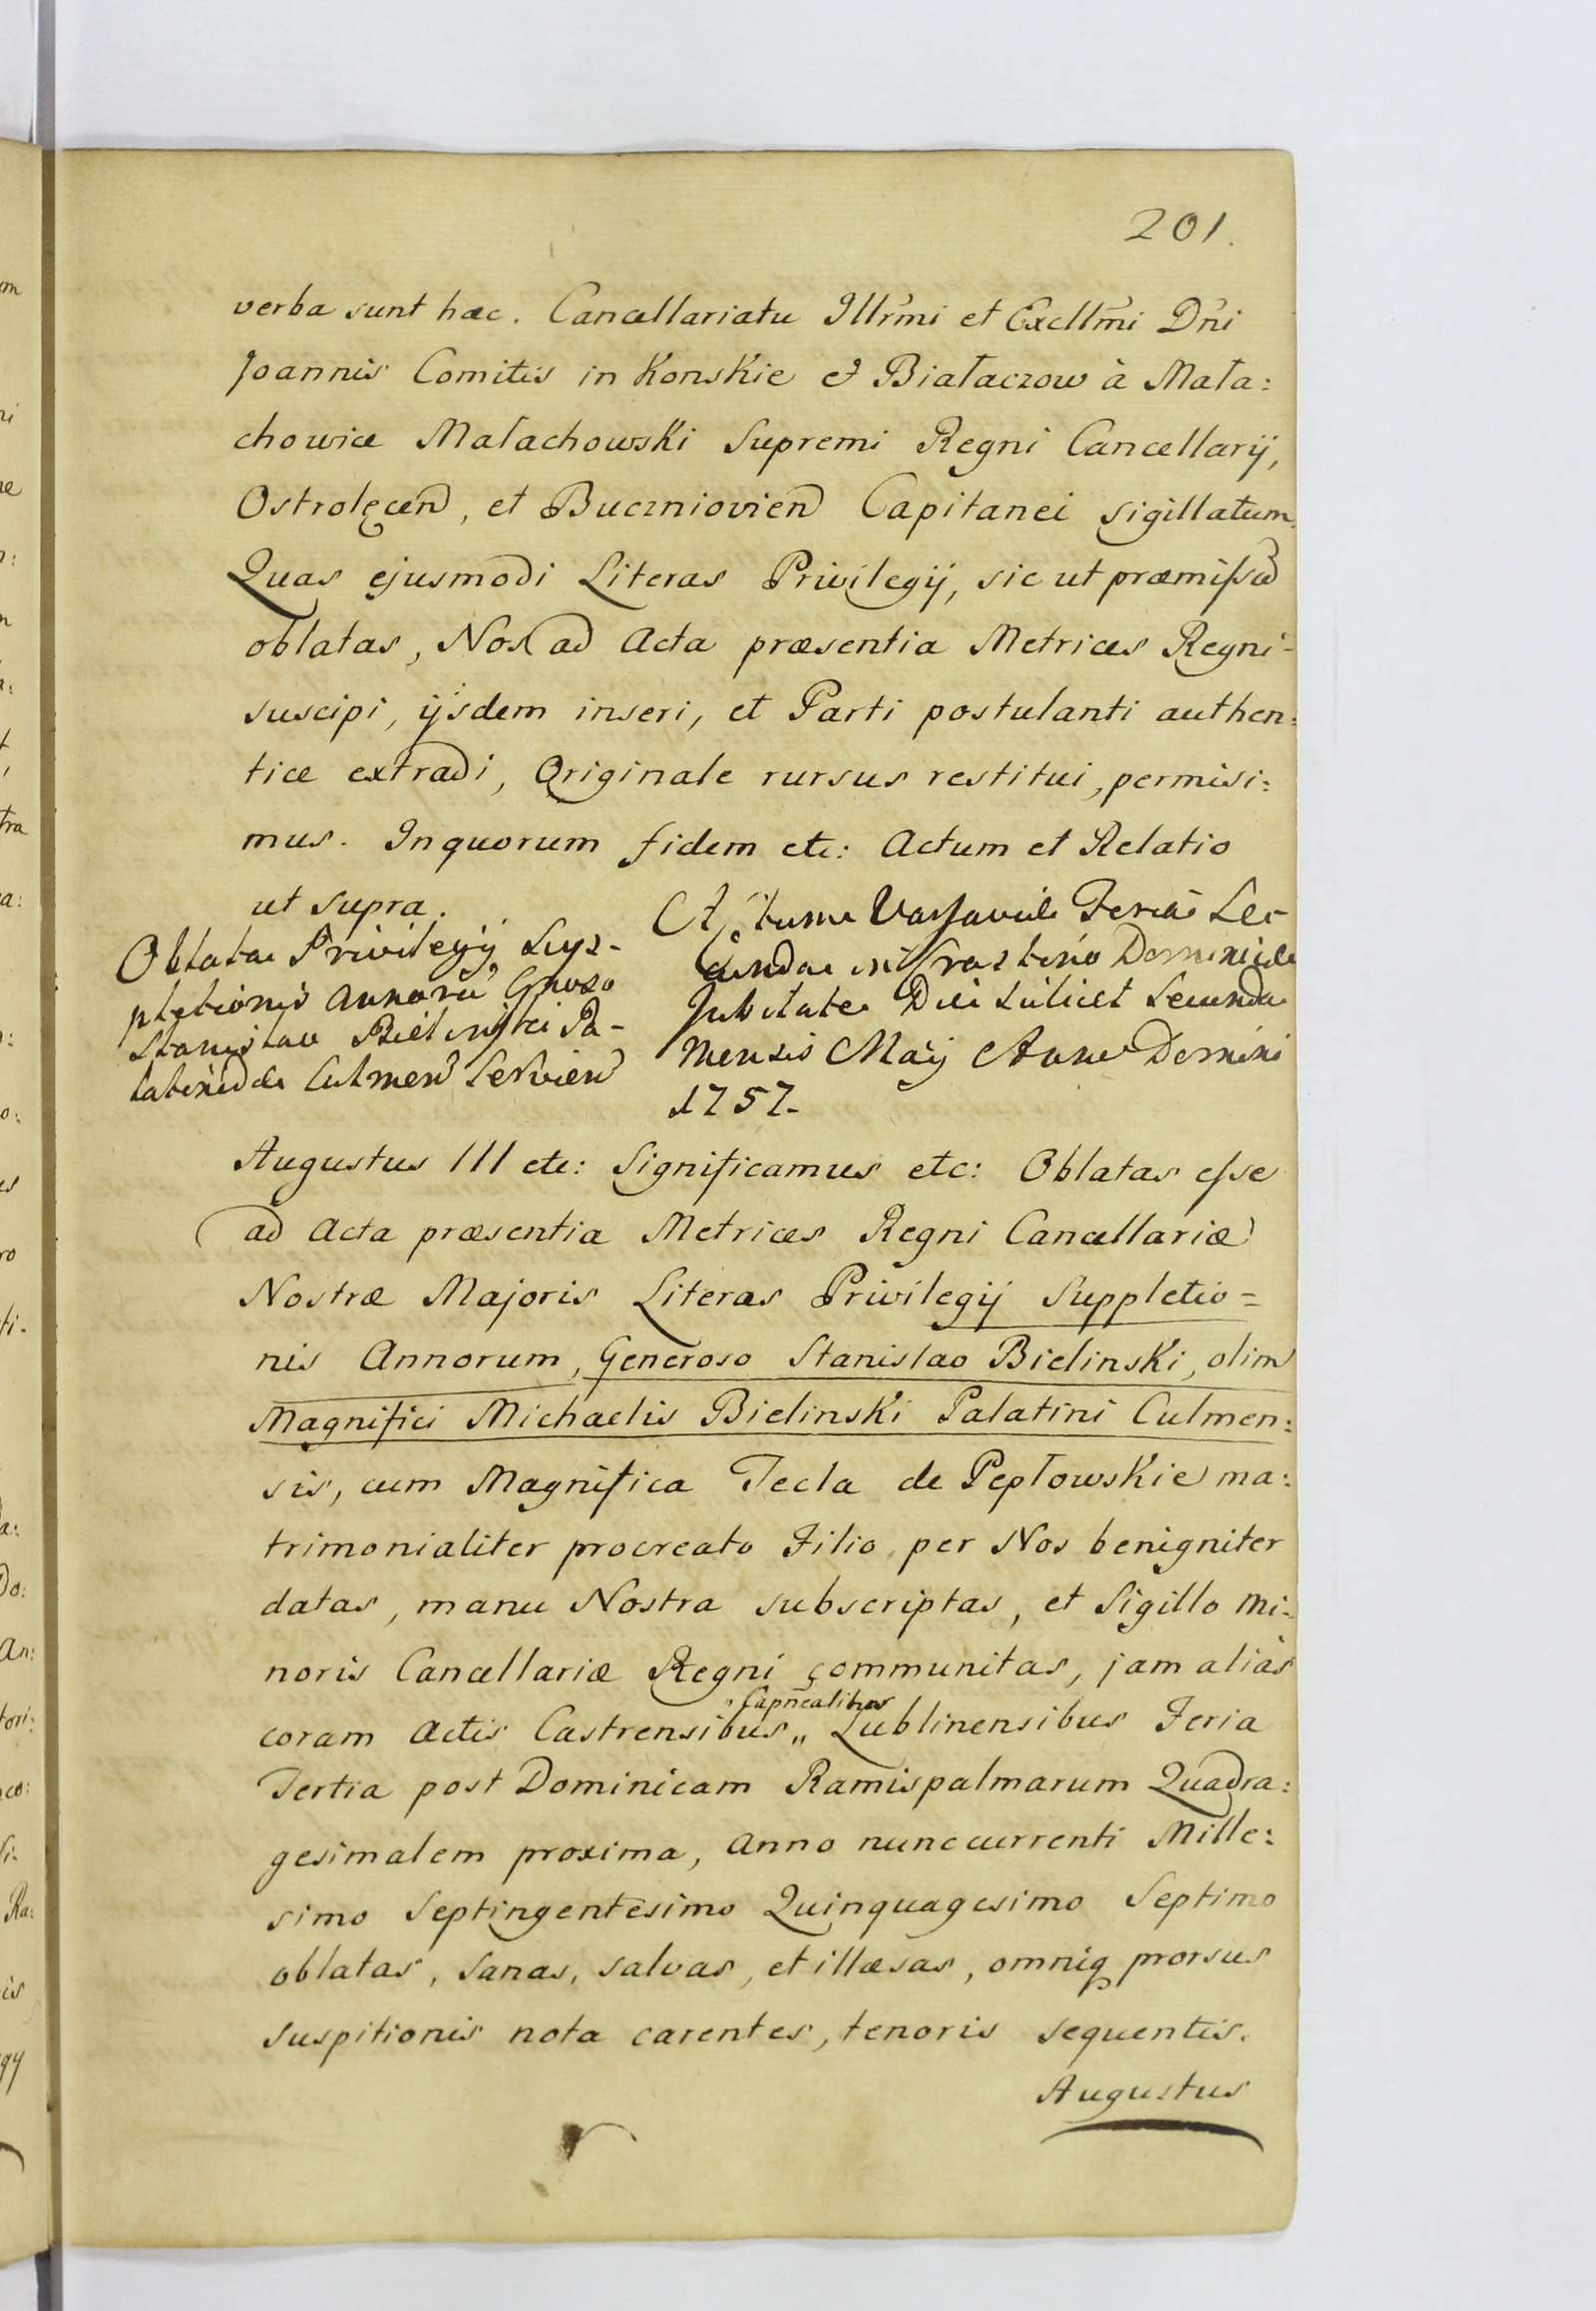 201.
verba sunt hæc. Cancellariatu Illr̃mi et Excllm̃i Dñi
Joannis Comitis in Konskie et Białaczow à Mała:
chowice Małachowski Supremi Regni Cancellarij,
Ostrolęcen, et Buczniovien Capitanei sigillatum.
Quas ejusmodi Literas Privilegij, sic ut præmissũ
oblatas, Nos ad Acta præsentia Metrices Regni
suscipi, ijsdem inseri, et Parti postulanti authen:
tice extradi, Originale rursus restitui, permisi:
mus. In quorum fidem etc: Actum et Relatio
ut supra.
Oblata Privilegij Sup-
pletionis annorũ Gnoso
Stanislao Bielinski Pa-
latinidæ Culmen Servien
Actum Varsaviæ Feria Se-
cunda in Crastino Dominicæ
Jubilate Die scilicet Secunda
Mensis Maij Anno Domini
1757.
Augustus III etc: Significamus etc: Oblatas esse
ad Acta præsentia Metrices Regni Cancellariæ
Nostræ Majoris Literas Privilegij Suppletio=
nis Annorum, Generoso Stanislao Bielinski, olim
Magnifici Michaelis Bielinski Palatini Culmen:
sis, cum Magnifica Tecla de Pepłowskie ma:
trimonialiter procreato Filio per Nos benigniter
datas, manu Nostra subscriptas, et Sigillo Mi:
noris Cancellariæ Regni communitas, jam aliàs
Capñealibus
coram Actis Castrensibus „ Lublinensibus Feria
Tertia post Dominicam Ramispalmarum Quadra:
gesimalem proxima, Anno nunc currenti Mille:
simo Septingentesimo Quinquagesimo Septimo
oblatas, sanas, salvas, et illæsas, omniq prorsus
suspitionis nota carentes, tenoris sequentis.
Augustus